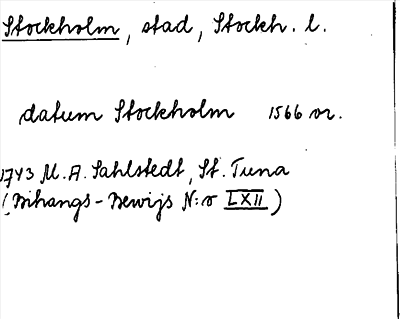 Stockholm, stad, Stockh. l.
datum Stockholm 1566 or.
1743 M. A. Sahlstedt, St. Tuna
(Bihangs-Bewijs N:o LXII)